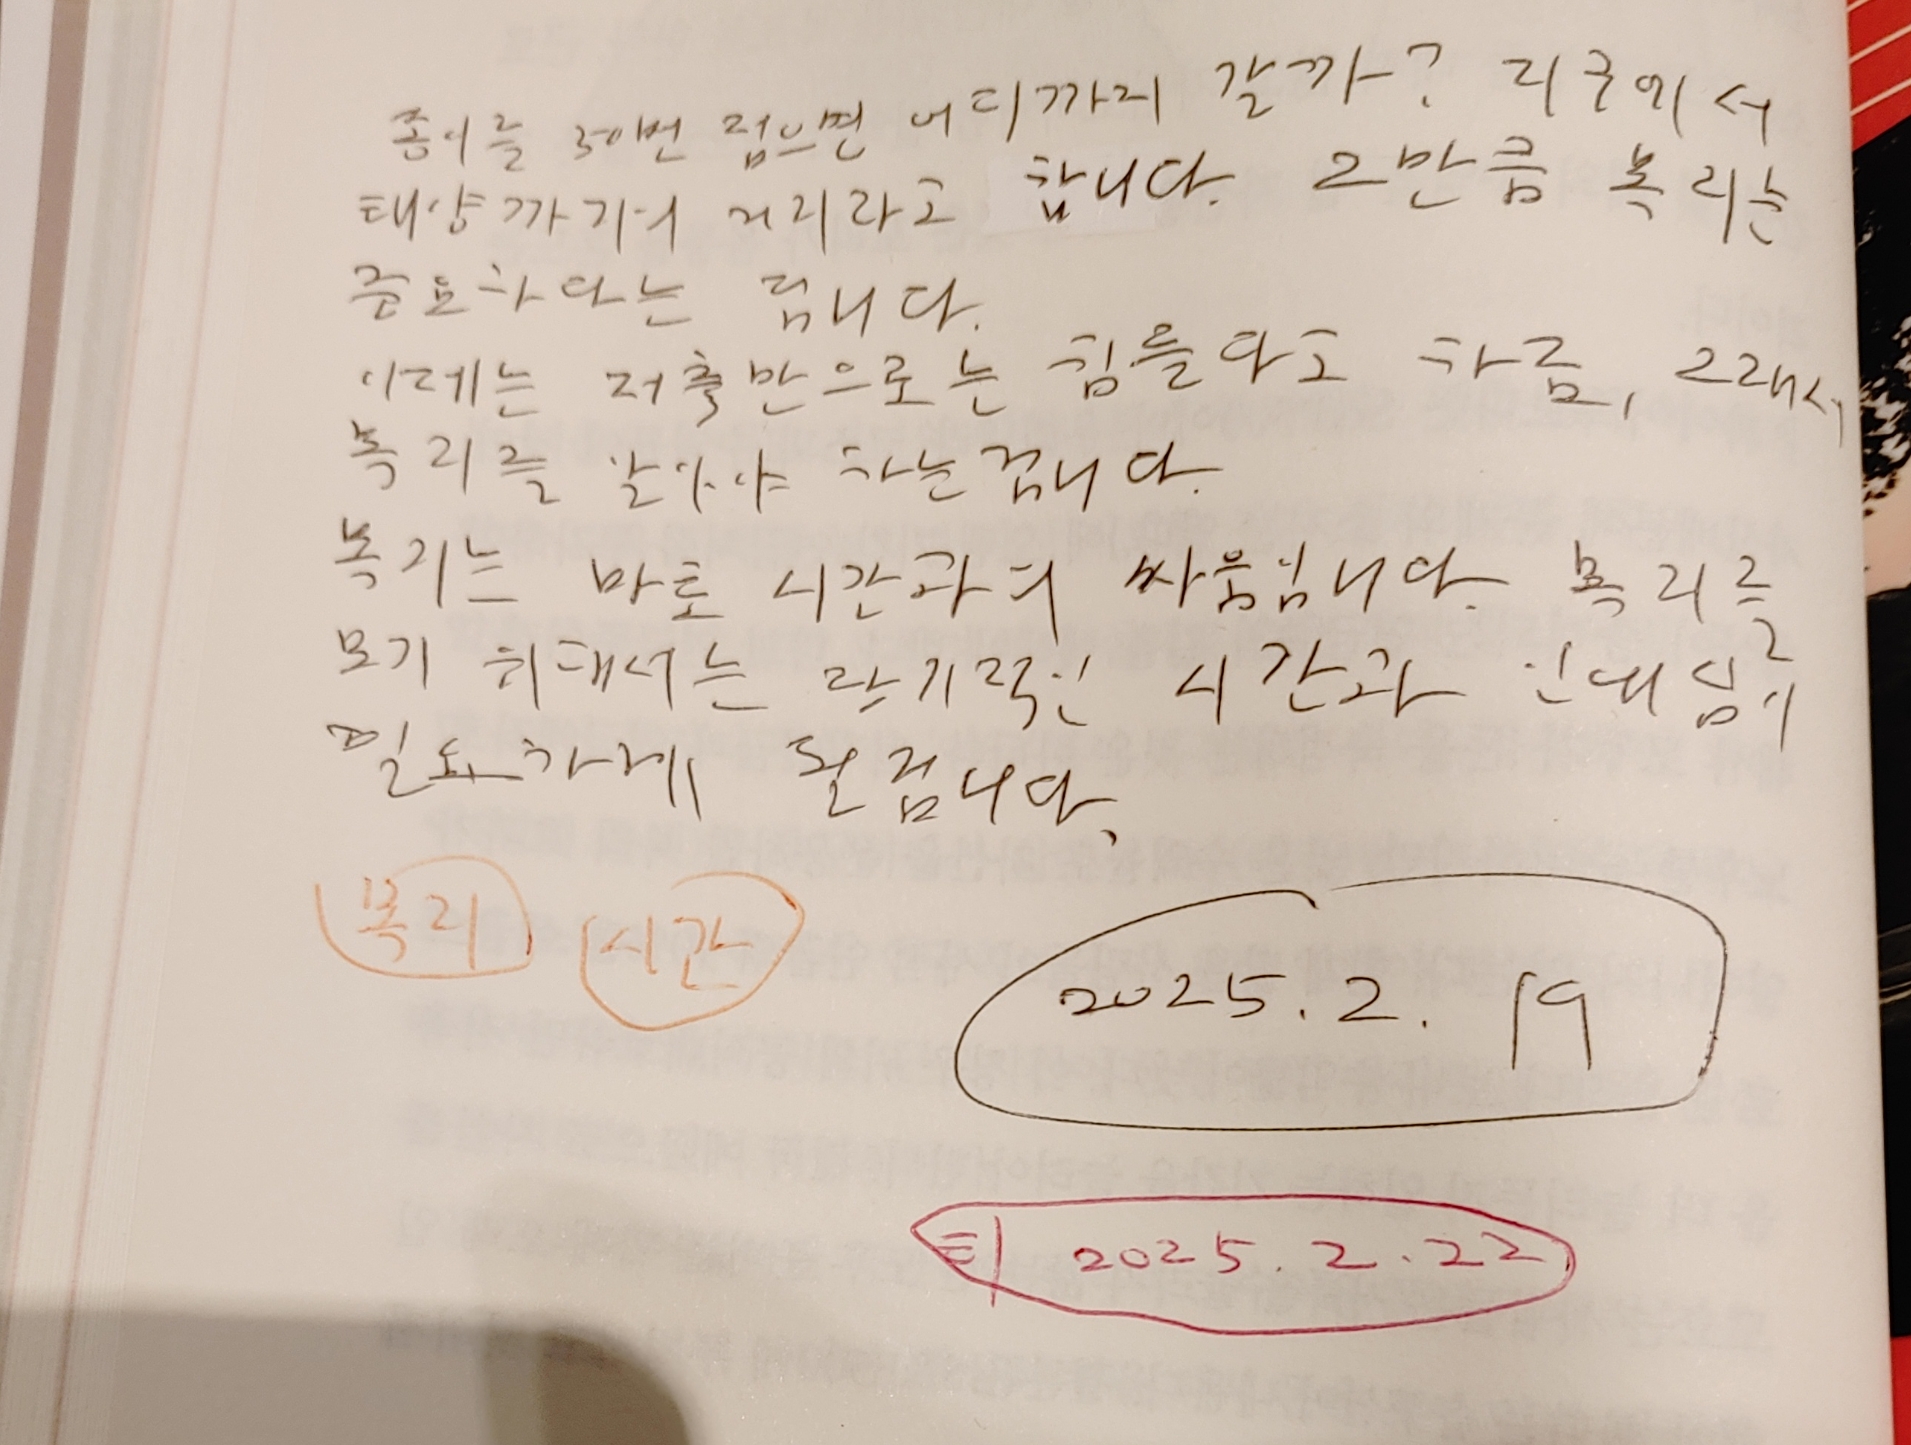 종이를 30번 접으면 어디까지 갈까? 지구에서
태양까지의 거리라고 합니다. 그만큼 복리는
중요하다는 겁니다.
이제는 저축만으로는 힘들다고 하죠, 그래서
복리를 알아야 하는겁니다.
복리는 바로 시간과의 싸움입니다. 복리를
보기 위해서는 장기적인 시간과 인내심이
필요하게 될겁니다.
복리 시간
2025. 2. 19
2025. 2. 22